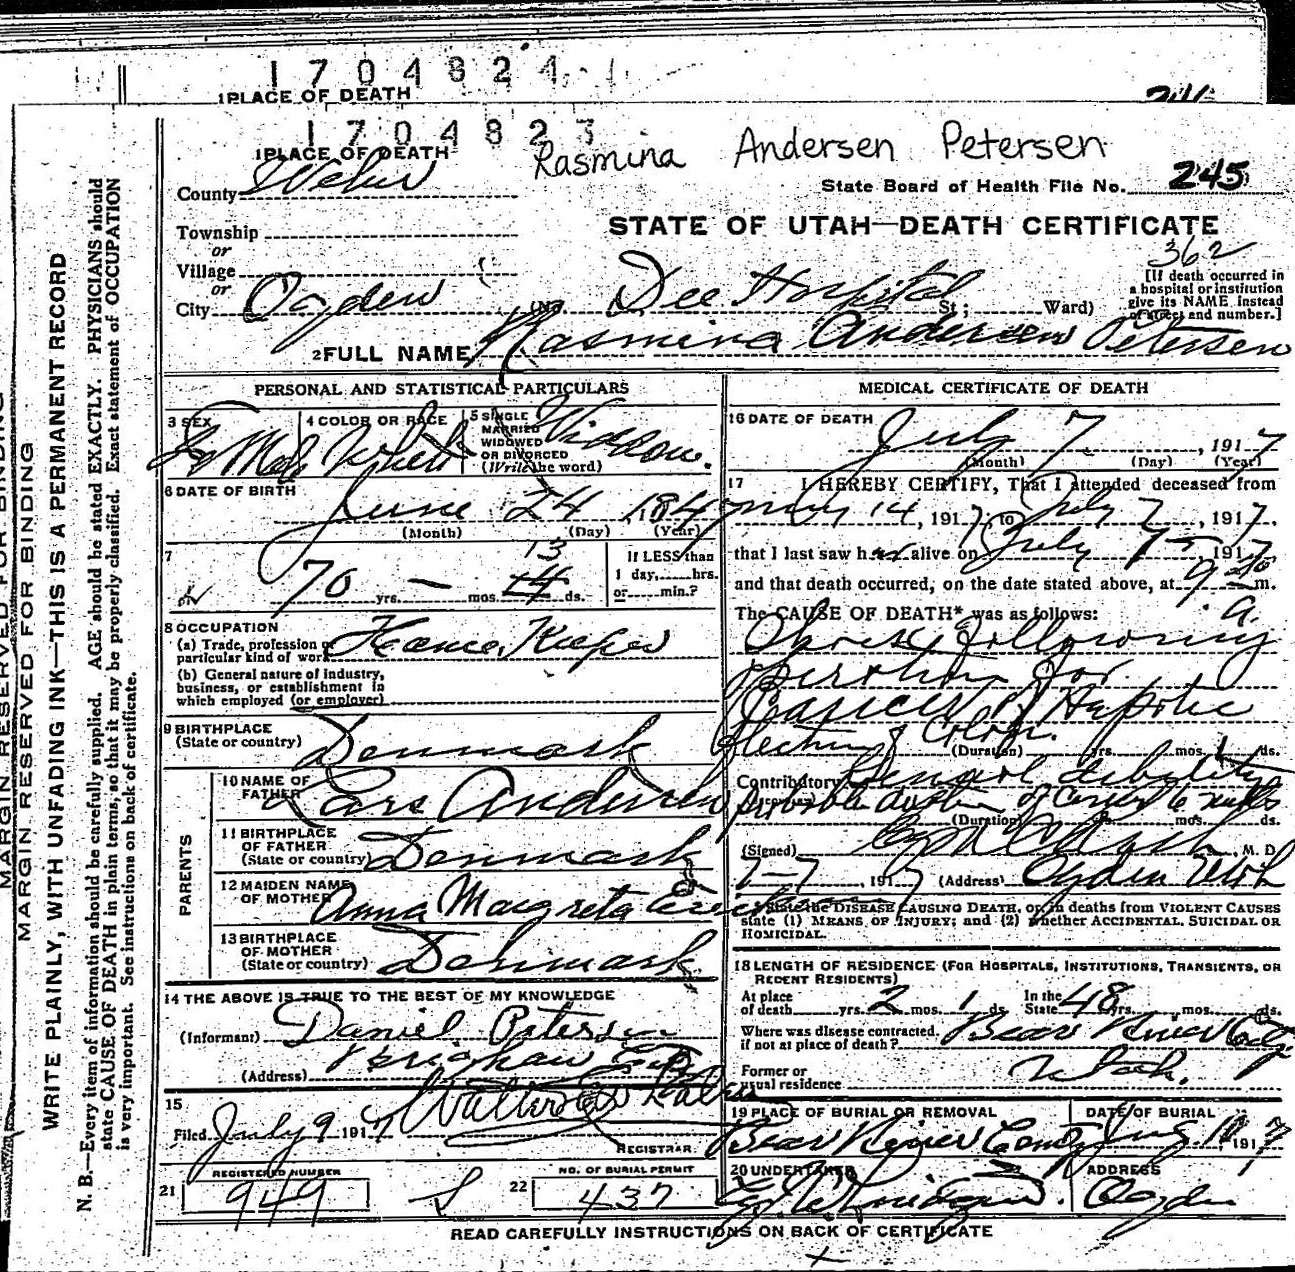 1704824
1 PLACE OF DEATH
1704823
1 PLACE OF DEATH
Rasmina Andersen Petersen
County Weber
State Board of Health File No. 245
STATE OF UTAH—DEATH CERTIFICATE
Township
or
Village
or
City Ogden (No. Dee Hospital St; Ward)
362
[If death occurred in a hospital or institution give its NAME instead of street and number.]
2 FULL NAME Rasmina Andersen Petersen
PERSONAL AND STATISTICAL PARTICULARS
3 SEX Female
4 COLOR OR RACE White
5 SINGLE MARRIED WIDOWED OR DIVORCED (Write the word) Widow.
6 DATE OF BIRTH June 24, 1847
(Month) (Day) (Year)
7 70 yrs. — mos. 13 14 ds.
If LESS than 1 day,......hrs. or......min.?
8 OCCUPATION
(a) Trade, profession or particular kind of work House Keeper
(b) General nature of industry, business, or establishment in which employed (or employer)
9 BIRTHPLACE (State or country) Denmark
PARENTS
10 NAME OF FATHER Lars Andersen
11 BIRTHPLACE OF FATHER (State or country) Denmark
12 MAIDEN NAME OF MOTHER Anna Margreta
13 BIRTHPLACE OF MOTHER (State or country) Denmark
14 THE ABOVE IS TRUE TO THE BEST OF MY KNOWLEDGE
(Informant) Daniel Petersen
(Address) Brigham City
15
Filed July 9 1917
REGISTRAR
REGISTERED NUMBER
21 949
NO. OF BURIAL PERMIT
22 437
MEDICAL CERTIFICATE OF DEATH
16 DATE OF DEATH July 7, 1917
(Month) (Day) (Year)
17 I HEREBY CERTIFY, That I attended deceased from
May 14, 1917, to July 7, 1917,
that I last saw her alive on July 7, 1917,
and that death occurred, on the date stated above, at 9 m.
a.
The CAUSE OF DEATH* was as follows:
following
operation for
Cancer of Hepatic
flecture of Colon.
(Duration) yrs. mos. 1 ds.
Contributory General debility
probable duration of cancer 6 mths
(Duration) yrs. mos. ds.
(Signed) M. D.
7-7, 1917 (Address) Ogden Utah
*State the DISEASE CAUSING DEATH, or, in deaths from VIOLENT CAUSES state (1) MEANS OF INJURY; and (2) whether ACCIDENTAL, SUICIDAL OR HOMICIDAL.
18 LENGTH OF RESIDENCE (FOR HOSPITALS, INSTITUTIONS, TRANSIENTS, OR RECENT RESIDENTS)
At place of death yrs. 2 mos. 1 ds. In the State 48 yrs. mos. ds.
Where was disease contracted, if not at place of death? Bear River City
Former or usual residence Utah.
19 PLACE OF BURIAL OR REMOVAL Bear River
DATE OF BURIAL 1917
20 UNDERTAKER
ADDRESS Ogden
READ CAREFULLY INSTRUCTIONS ON BACK OF CERTIFICATE
MARGIN RESERVED FOR BINDING
WRITE PLAINLY, WITH UNFADING INK—THIS IS A PERMANENT RECORD
N. B.—Every item of information should be carefully supplied. AGE should be stated EXACTLY. PHYSICIANS should
state CAUSE OF DEATH in plain terms, so that it may be properly classified. Exact statement of OCCUPATION
is very important. See instructions on back of certificate.